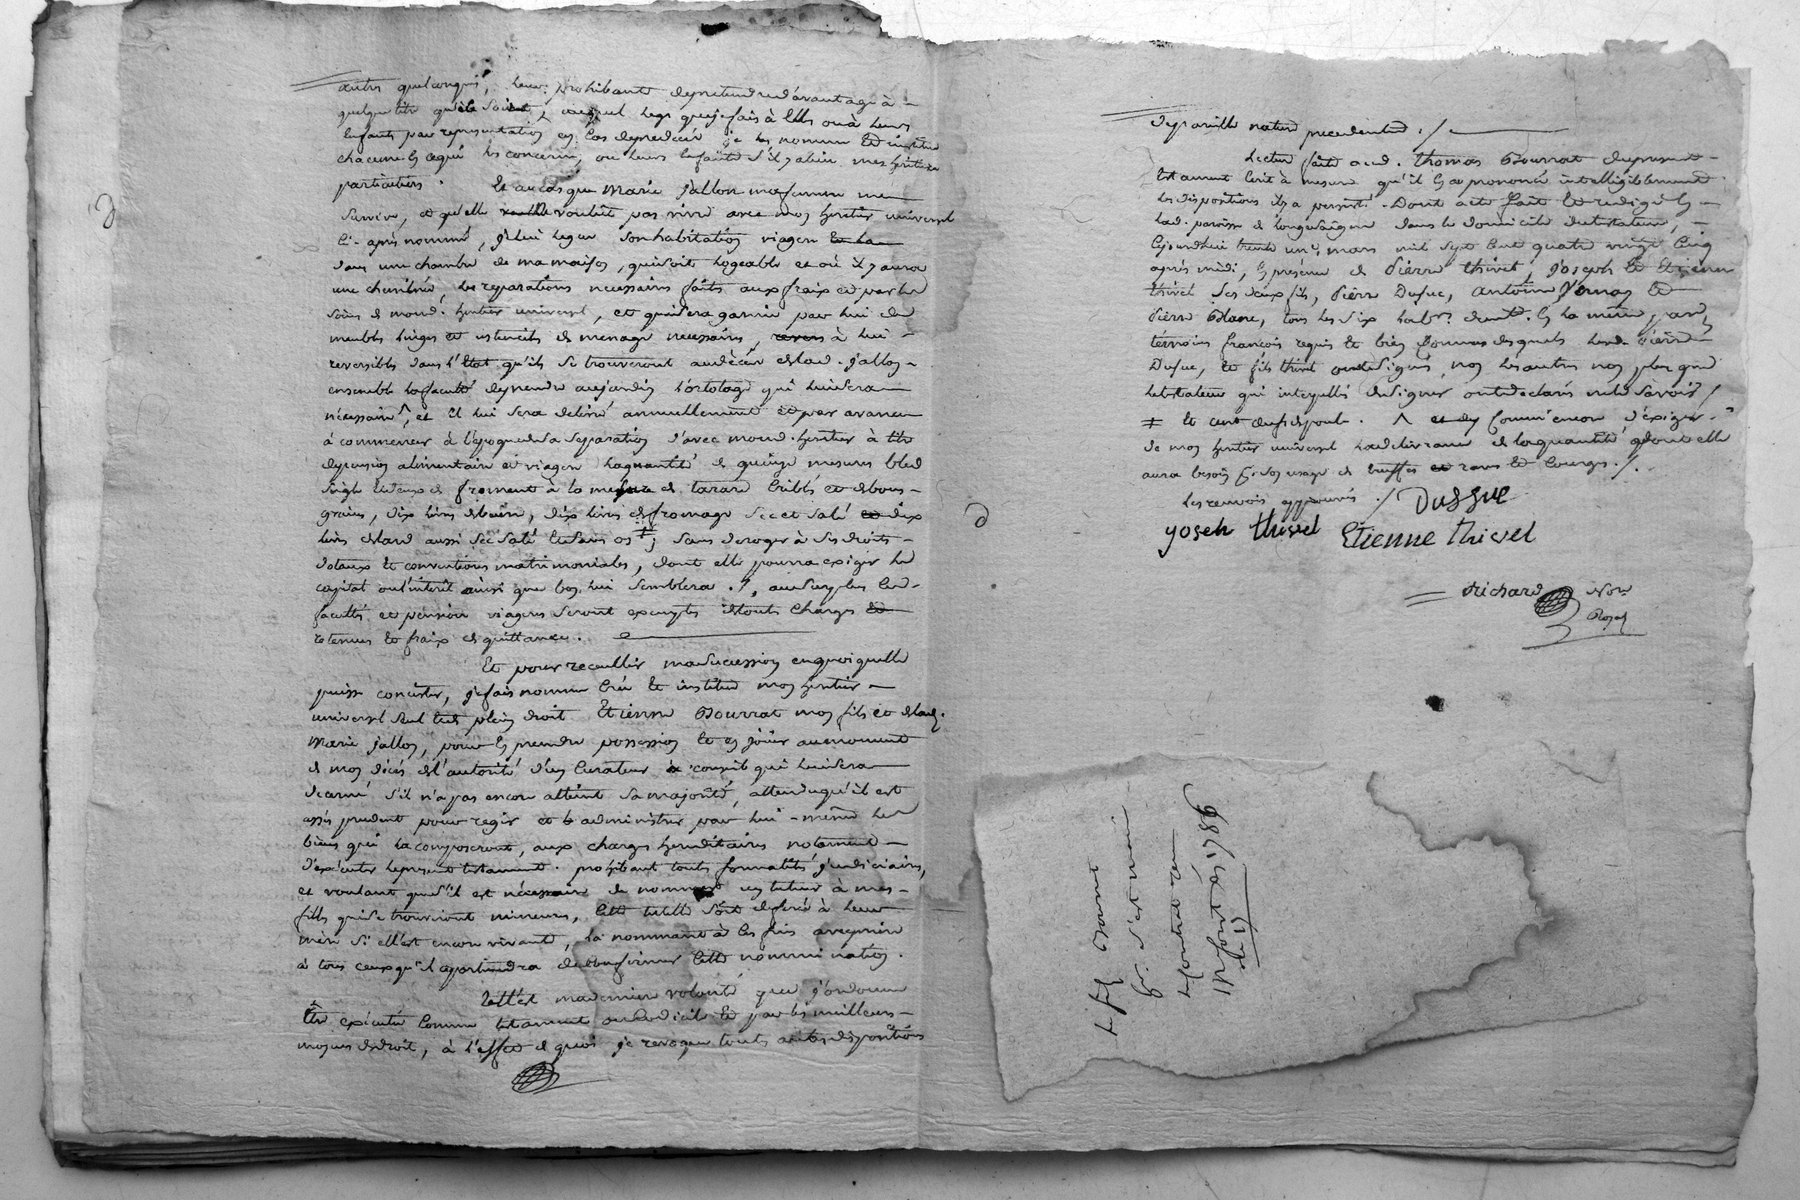 autres quelconques, leur prohibant de pretendre d'avantage à
quelque titre que ce soit, auquel legs que je fais à elles ou à leurs
enfants par representation en cas de predecés je les nomme et institue
chacune en ce qui les concerne, ou leurs enfants s'il y a lieu mes heritiers
particuliers. Et au cas que Marie Jallon ma femme me
survive, et qu'elle voulût pas vivre avec mon heritier universel
ci-après nommé, je lui legue son habitation viagere
dans une chambre de ma maison, qui soit logeable et où il y aura
une cheminée, les reparations necessaires faites aux fraix et par les
soins de mond. heritier universel, et qui sera garnie par lui de
meubles linges et ustenciles de menage necessaires, à lui
reversibles dans l'état qu'ils se trouveront au décès de lad. Jallon
ensemble la faculté de prendre au jardin l'ortolage qui lui sera
nécessaire ^, et il lui sera delivré annuellement et par avance
à commencer à l'époque de la separation d'avec mond. heritier à titre
de pension alimentaire et viagere la quantité de quinze mesures bled
seigle de froment à la mesure de tarare criblés et
dix livres de beurre, dix livres de fromage sec et salé dix
livres de lard aussi sec salé et sans os ‡; sans deroger à ses droits
dotaux et conventions matrimoniales, dont elle pourra exiger le
capital ou l'interêt ainsi que bon lui semblera ./, au surplus lesd.
facultés et pension viageres seront exemptes de toutes charges
retenues et fraix de quittance.
Et pour recueillir ma succession en quoi qu'elle
puisse consister, j'ai fais nomme créé et institue mon heritier
universel seul et de plein droit Etienne Bourrat mon fils et de lad.
Marie Jallon, pour en prendre possession et en jouir au moment
de mon décés de l'autorité d'un curateur conseil qui lui sera
decerné s'il n'a pas encore atteint sa majorité, attendu qu'il est
assés prudent pour regir et administrer par lui-même les
biens qui la composeront, aux charges hereditaires notament
d'exécuter le present testament. prohibant toutes formalités judiciaires,
et voulant que s'il est nécessaire de nommer un tuteur à mes
filles qui se trouveront mineures, cette tutelle soit deferée à leur
mère si elle est encore vivante, la nommant à ces fins avec prière
à tous ceux qu'il apartiendra de confirmer cette nomination.
Telle est ma derniere volonté que j'ordonne
être exécutée comme testament ou codicile et par les meilleurs
moyens de droit, à l'effet de quoi je revoque toutes autres dispositions
de pareille nature precedentes ./
Lecture faite aud. Thomas Bourrat du present
testament écrit à mesure qu'il en a prononcé intelligiblement
les dispositions il y a persisté. Dont acte fait et redigé en
lad. paroisse de Longessaigne dans le domicile du testateur,
cejourd'hui trente un mars mil sept cent quatre vingt cinq
après midi, en présence de Pierre Thivel, Joseph et Etienne
Thivel ses deux fils, Pierre Dussuc, Antoine et
Pierre Blanc, tous les six habt. demt. en la même par.
témoins françois requis et bien connus desquels led. Pierre
Dussuc, et fils Thivel ont signé, non les autres non plus que
le testateur qui interpellés de signer ont declaré ne le savoir /
‡ et cent ^ d'exiger
de mon heritier universel la delivrance de la quantité dont elle
aura besoin pr. son usage de truffes raves et courges ./.
les renvois approuvés ./ Dussuc
yoseh thivel Etienne Thivel
Richard Nore
Royal
Le fils Bourrat
1786